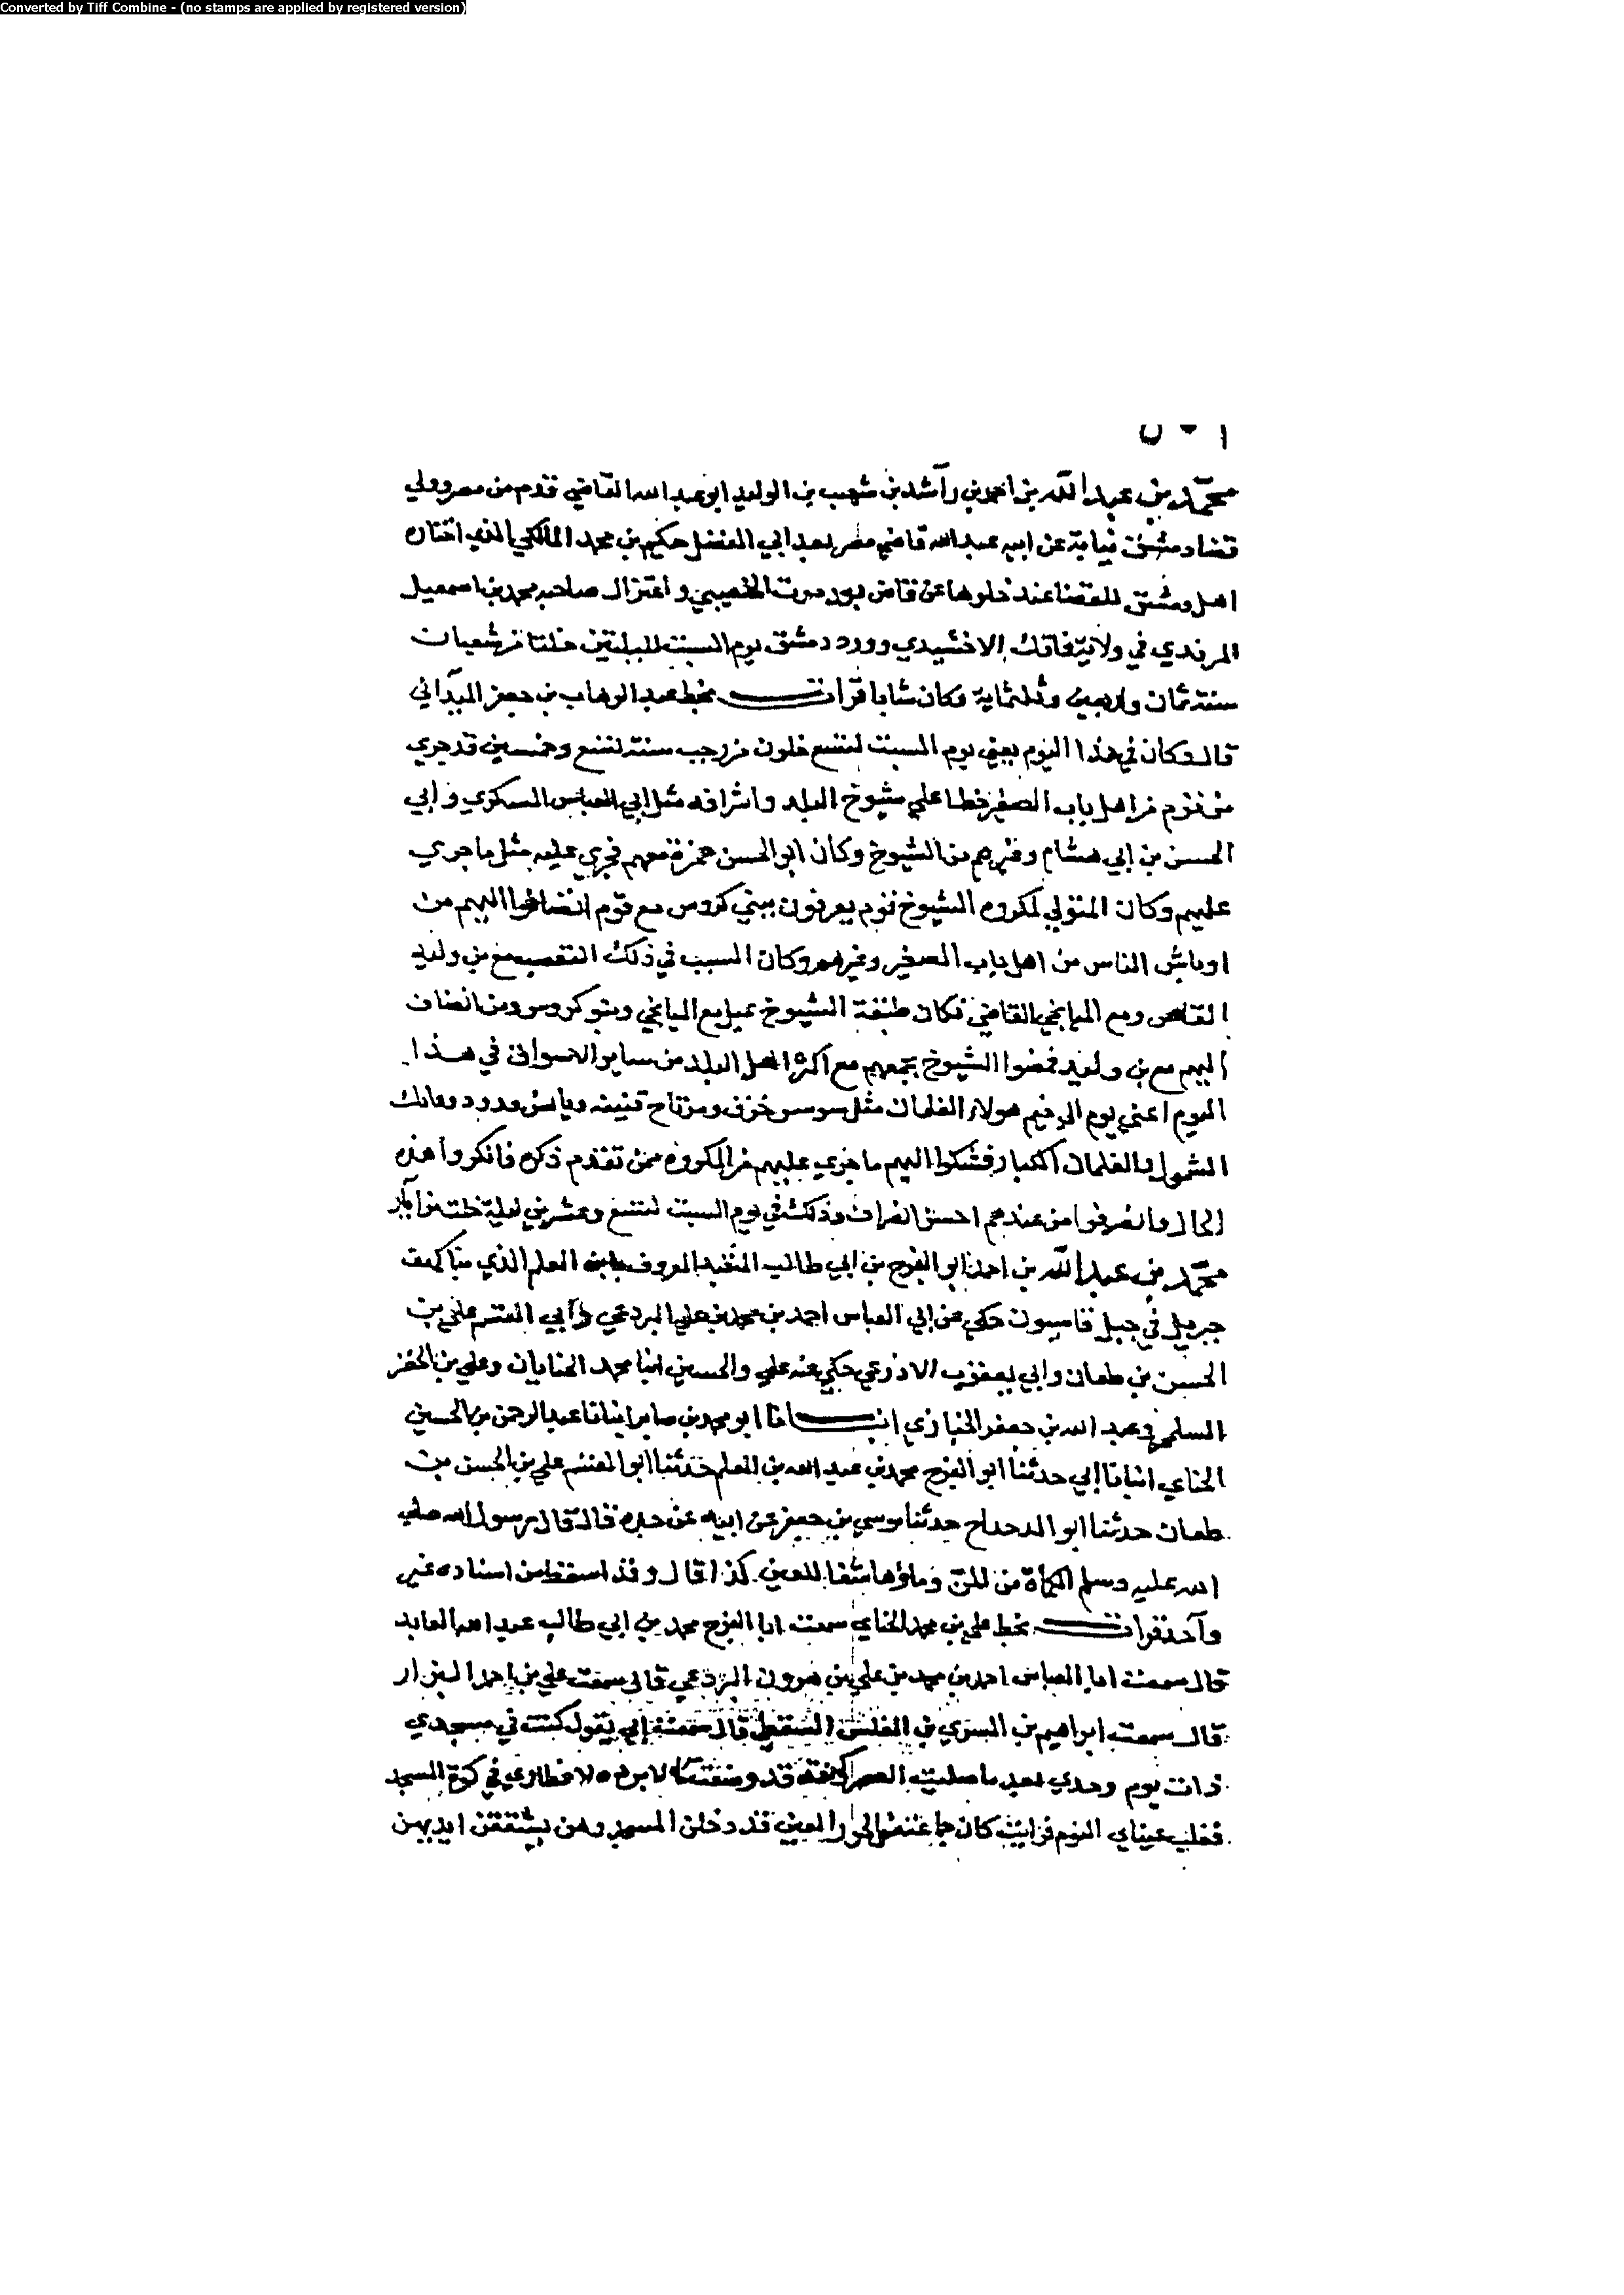 Converted by Tiff Combine - (no stamps are applied by registered version)
محمد بن عبد الله بن احمد بن راشد بن شعيب بن الوليد ابو عبد الله القاضي قدم من مصر وولي
قضا دمشق نيابة عن ابيه عبد الله قاضي مصر بعد ابي الفضل حكيم بن محمد المالكي الذي اختاره
اهل دمشق للقضا عند خلوها عن قاض بعد موت الخصيبي و اعتزال صاحبه محمد بن اسمعيل
في ولاية فاتك الاخشيدي وورد دمشق يوم السبت لليلتين خلتا من شعبان
سنة ثمان واربعين وثلثماية وكان شابا قرات بخط عبد الوهاب بن جعفر الميداني
قال وكان في هذا اليوم يعني يوم السبت لتسع خلون من رجب سنة تسع وخمسين قد جري
من قوم من اهل باب الصغير خطا علي مشيوخ البلد واشرافه مثل ابي العباس السكري وابي
الحسن بن ابي هشام وغيرهم من الشيوخ وكان ابو الحسن حمزة معهم فجري عليه مثل ما جري
عليهم وكان المتولي لمكروه الشيوخ قوم يعرفون ببني كروس مع قوم انضافوا اليهم من
اوباش الناس من اهل باب الصغير وغيرهم وكان السبب في ذلك التعصب مع بن وليد
القاضي ومع الميانجي القاضي فكان طبقة الشيوخ تميل مع الميانجي وبنو كروس ومن انضاف
اليهم مع بن وليد فمضوا الشيوخ بجمعهم مع اكثر اهل البلد من ساير الاسواق في هذا
اليوم اعني يوم الي خيم هولاء الغلمان مثل
الشمولي الغلمان الكبار فشكوا اليهم ما جري عليهم من المكروه ممن تقدم ذكره فانكروا هذه
الحال وانصرفوا من عندهم احسن انصراف وذلك في يوم السبت لتسع وعشرين ليلة خلت من ايار
محمد بن عبد الله بن احمد ابو الفرج بن ابي طالب المعروف بابن المعلم الذي بنا كهف
جبريل في جبل قاسيون حكي عن ابي العباس احمد بن محمد بن علي البردعي وابي القسم علي بن
الحسن بن طعان وابي يعقوب الاذرعي حكي عنه علي والحسين ابنا محمد الحنايان وعلي بن الخضر
السلمي وعبد الله بن جعفر الخبازي انبانا ابو محمد بن صابر انبانا عبد الرحمن بن الحسين
الحناي انبانا ابي حدثنا ابو الفرج محمد بن عبد الله بن المعلم حدثنا ابو القسم علي بن الحسن بن
طعان حدثنا ابو الدحداح حدثنا موسي بن جعفر عن ابيه عن جده قال قال رسول الله صلي
الله عليه وسلم الكمأة من المن وماؤها شفا للعين كذا قال وقد اسقط من اسناده غير
واحد قرات بخط علي بن محمد الحناي سمعت ابا الفرج محمد بن ابي طالب عبد الله العابد
قال سمعت ابا العباس احمد بن محمد بن علي بن هرون البردعي قال سمعت علي بن احمد البزار
قال سمعت ابراهيم بن السري بن المغلس السقطي قال سمعت ابي يقول كنت في مسجدي
ذات يوم وحدي بعد ما صليت العصر وكنت قد وضعت لابرده لافطاري في كوة المسجد
فغلب عيناي النوم فرايت كان جماعة من الحور العين قد دخلن المسجد وهن يشققن ايديهن